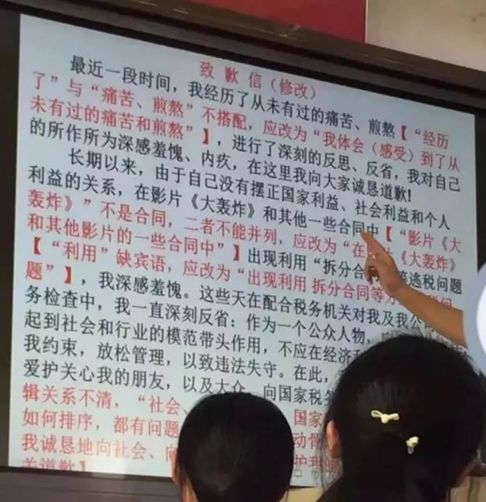 致歉信（修改）
最近一段时间，我经历了从未有过的痛苦、煎熬【“经历
了”与“痛苦、煎熬”不搭配，应改为“我体会（感受）到了从
未有过的痛苦和煎熬”】，进行了深刻的反思、反省，我对自己
的所作所为深感羞愧、内疚，在这里我向大家诚恳道歉！
长期以来，由于自己没有摆正国家利益、社会利益和个人
利益的关系，在影片《大轰炸》和其他一些合同中【“影片《大
轰炸》”不是合同，二者不能并列，应改为“在 《大轰炸》
和其他影片的一些合同中”】出现利用“拆分合同 逃税问题
【“利用”缺宾语，应改为“出现利用拆分合同等方
题”】，我深感羞愧。这些天在配合税务机关对我及我公
务检查中，我一直深刻反省：作为一个公众人物，
起到社会和行业的模范带头作用，不应在经济利
我约束，放松管理，以致违法失守。在此，
爱护关心我的朋友，以及大众 向国家税务
辑关系不清，“社会、 国家
如何排序，都有问题
我诚恳地向社会、
关道歉】